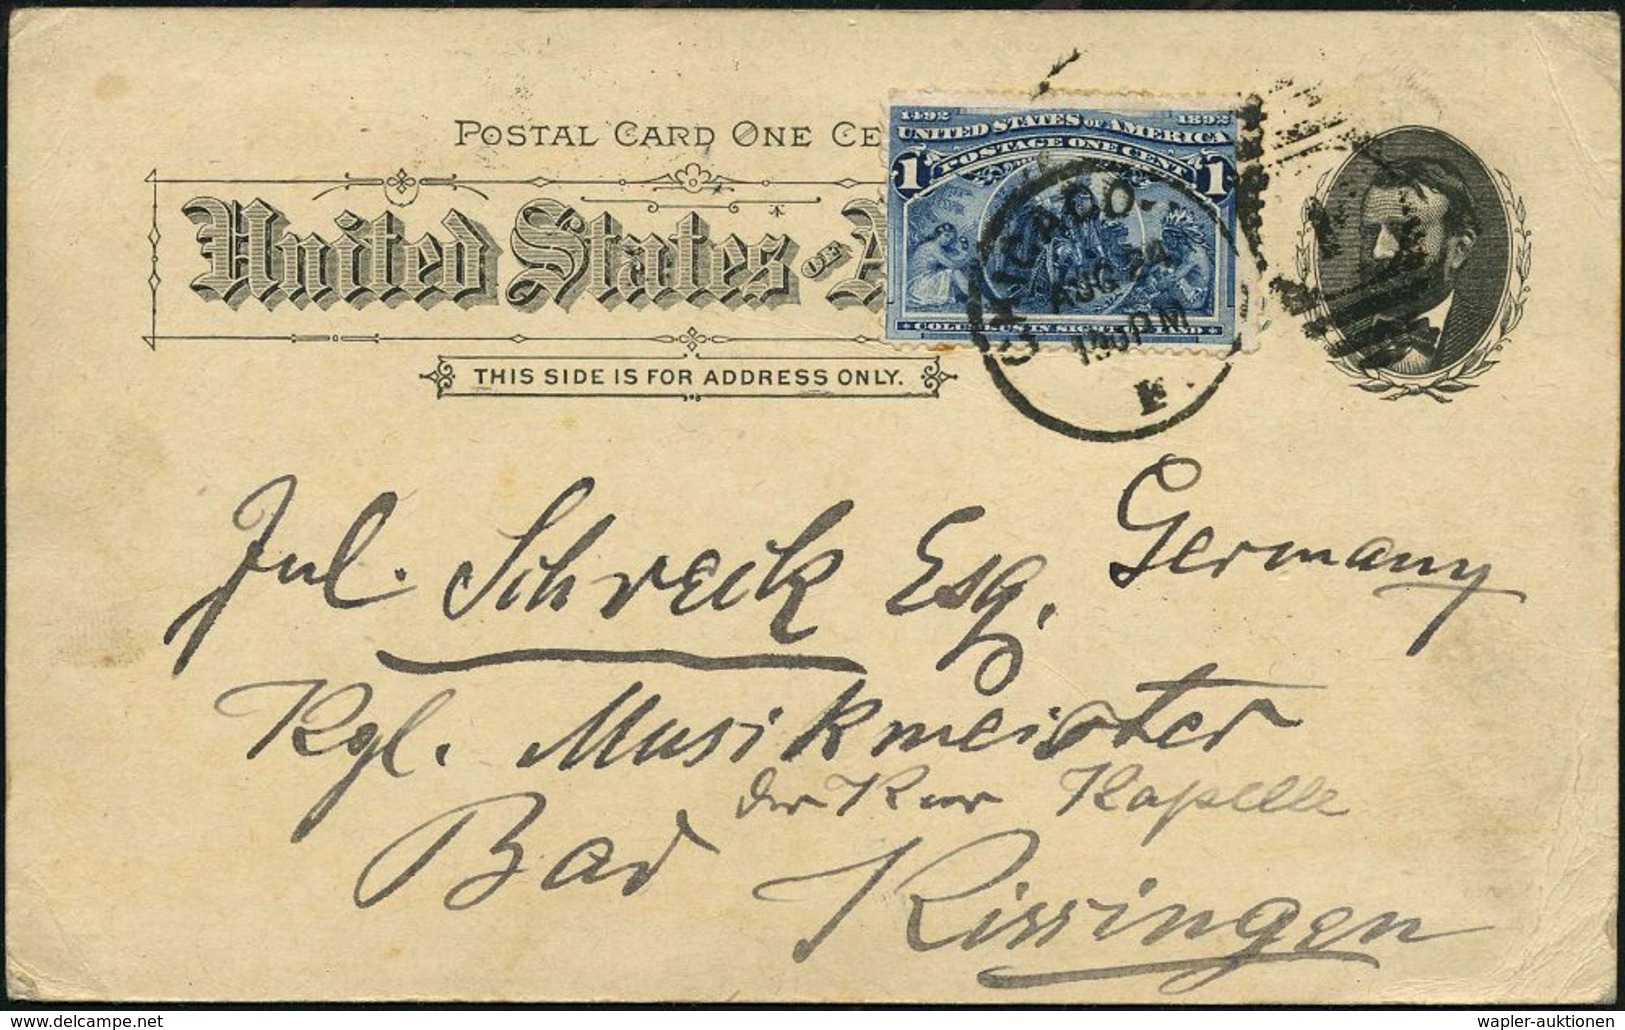 POSTAL CARD ONE CE
1492 1892
UNITED STATES OF AMERICA
1 POSTAGE ONE CENT 1
COLUMBUS IN SIGHT OF LAND
United States OF A
THIS SIDE IS FOR ADDRESS ONLY.
CHICAGO
AUG 24
PM
F
Germany
Jul. Schreck Esq.
Kgl. Musikmeister
der Kur Kapelle
Bad Kissingen
delcampe.net
wapler-auktionen